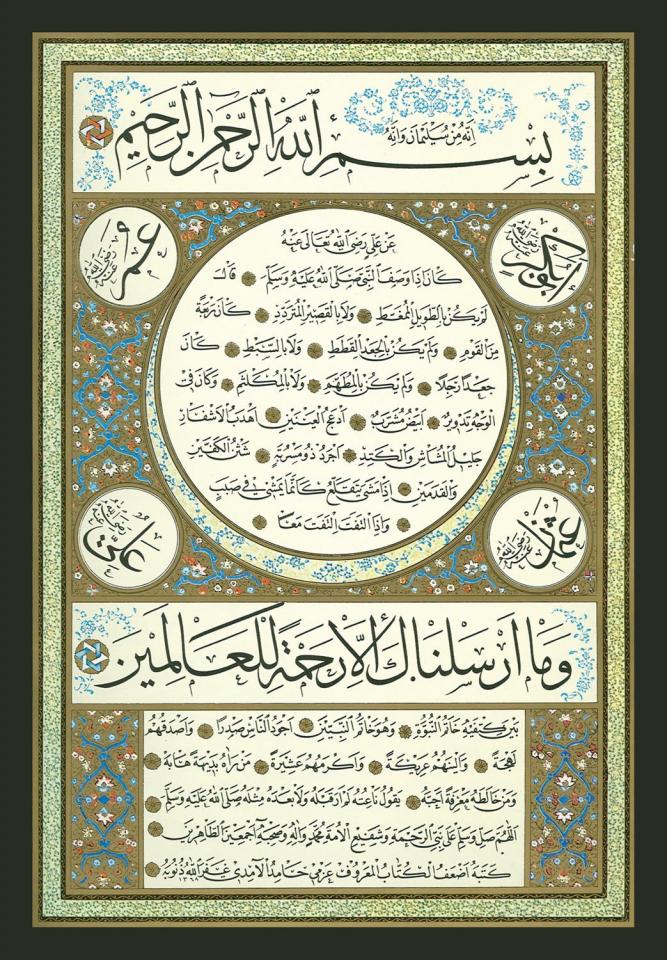 إِنَّهُ مِنْ سُلَيْمَانَ وَإِنَّهُ
بِسْمِ اللَّهِ الرَّحْمَنِ الرَّحِيمِ
أبو بكر رضي الله عنه
عمر رضي الله عنه
عَنْ عَلِيٍّ رَضِيَ اللهُ تَعَالَى عَنْهُ
كَانَ إِذَا وَصَفَ النَّبِيَّ صَلَّى اللهُ عَلَيْهِ وَسَلَّمَ قَالَ
لَمْ يَكُنْ بِالطَّوِيلِ الْمُمَّغِطِ وَلَا بِالْقَصِيرِ الْمُتَرَدِّدِ كَانَ رَبْعَةً
مِنَ الْقَوْمِ وَلَمْ يَكُنْ بِالْجَعْدِ الْقَطَطِ وَلَا بِالسَّبِطِ كَانَ
جَعْدًا رَجِلًا وَلَمْ يَكُنْ بِالْمُطَهَّمِ وَلَا بِالْمُكَلْثَمِ وَكَانَ فِي
الْوَجْهِ تَدْوِيرٌ أَبْيَضُ مُشْرَبٌ أَدْعَجُ الْعَيْنَيْنِ أَهْدَبُ الْأَشْفَارِ
جَلِيلُ الْمُشَاشِ وَالْكَتَدِ أَجْرَدُ ذُو مَسْرُبَةٍ شَثْنُ الْكَفَّيْنِ
وَالْقَدَمَيْنِ إِذَا مَشَى يَتَقَلَّعُ كَأَنَّمَا يَمْشِي فِي صَبَبٍ
وَإِذَا الْتَفَتَ الْتَفَتَ مَعًا
عثمان رضي الله عنه
علي رضي الله عنه
وَمَا أَرْسَلْنَاكَ إِلَّا رَحْمَةً لِلْعَالَمِينَ
بَيْنَ كَتِفَيْهِ خَاتَمُ النُّبُوَّةِ وَهُوَ خَاتَمُ النَّبِيِّينَ أَجْوَدُ النَّاسِ صَدْرًا وَأَصْدَقُهُمْ
لَهْجَةً وَأَلْيَنُهُمْ عَرِيكَةً وَأَكْرَمُهُمْ عَشِيرَةً مَنْ رَآهُ بَدِيهَةً هَابَهُ
وَمَنْ خَالَطَهُ مَعْرِفَةً أَحَبَّهُ يَقُولُ نَاعِتُهُ لَمْ أَرَ قَبْلَهُ وَلَا بَعْدَهُ مِثْلَهُ صَلَّى اللهُ عَلَيْهِ وَسَلَّمَ
اللَّهُمَّ صَلِّ وَسَلِّمْ عَلَى نَبِيِّ الرَّحْمَةِ وَشَفِيعِ الْأُمَّةِ مُحَمَّدٍ وَآلِهِ وَصَحْبِهِ أَجْمَعِينَ الطَّاهِرِينَ
كَتَبَهُ أَضْعَفُ الْكُتَّابِ الْمَعْرُوفُ عَزْمِي حَامِدُ الْآمِدِي غَفَرَ اللهُ ذُنُوبَهُ